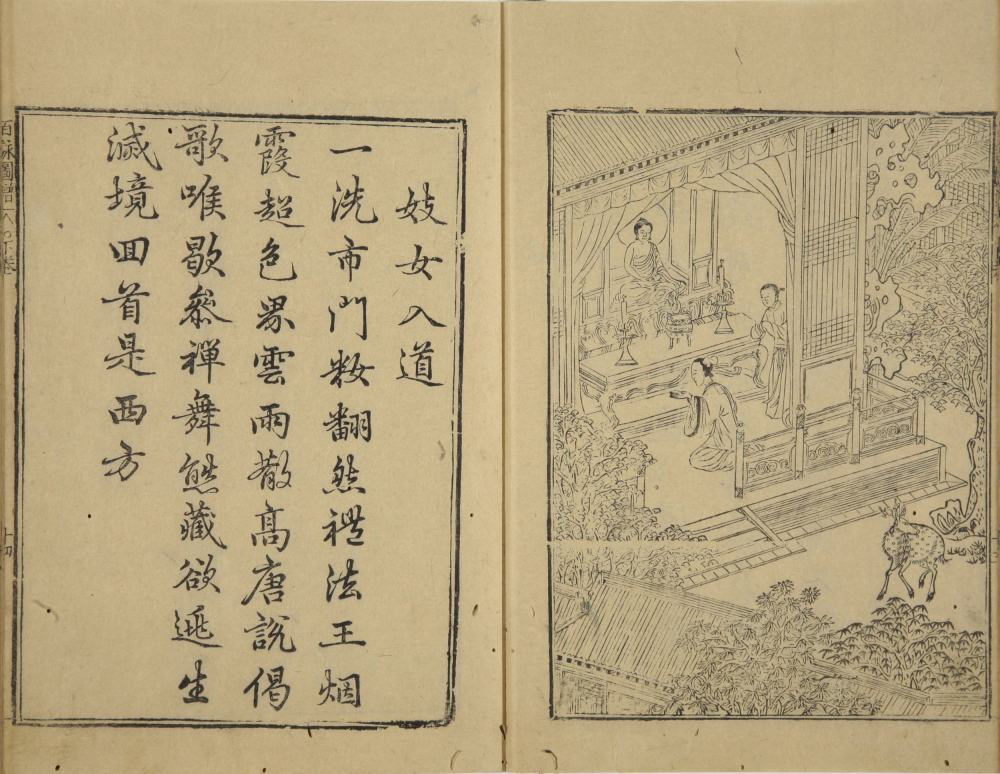 妓女入道
一洗市門妝翻然禮法王烟
霞超色界雲雨散高唐說偈
歌喉歇叅禪舞態藏欲逃生
滅境回首是西方
百詠圖譜
下卷